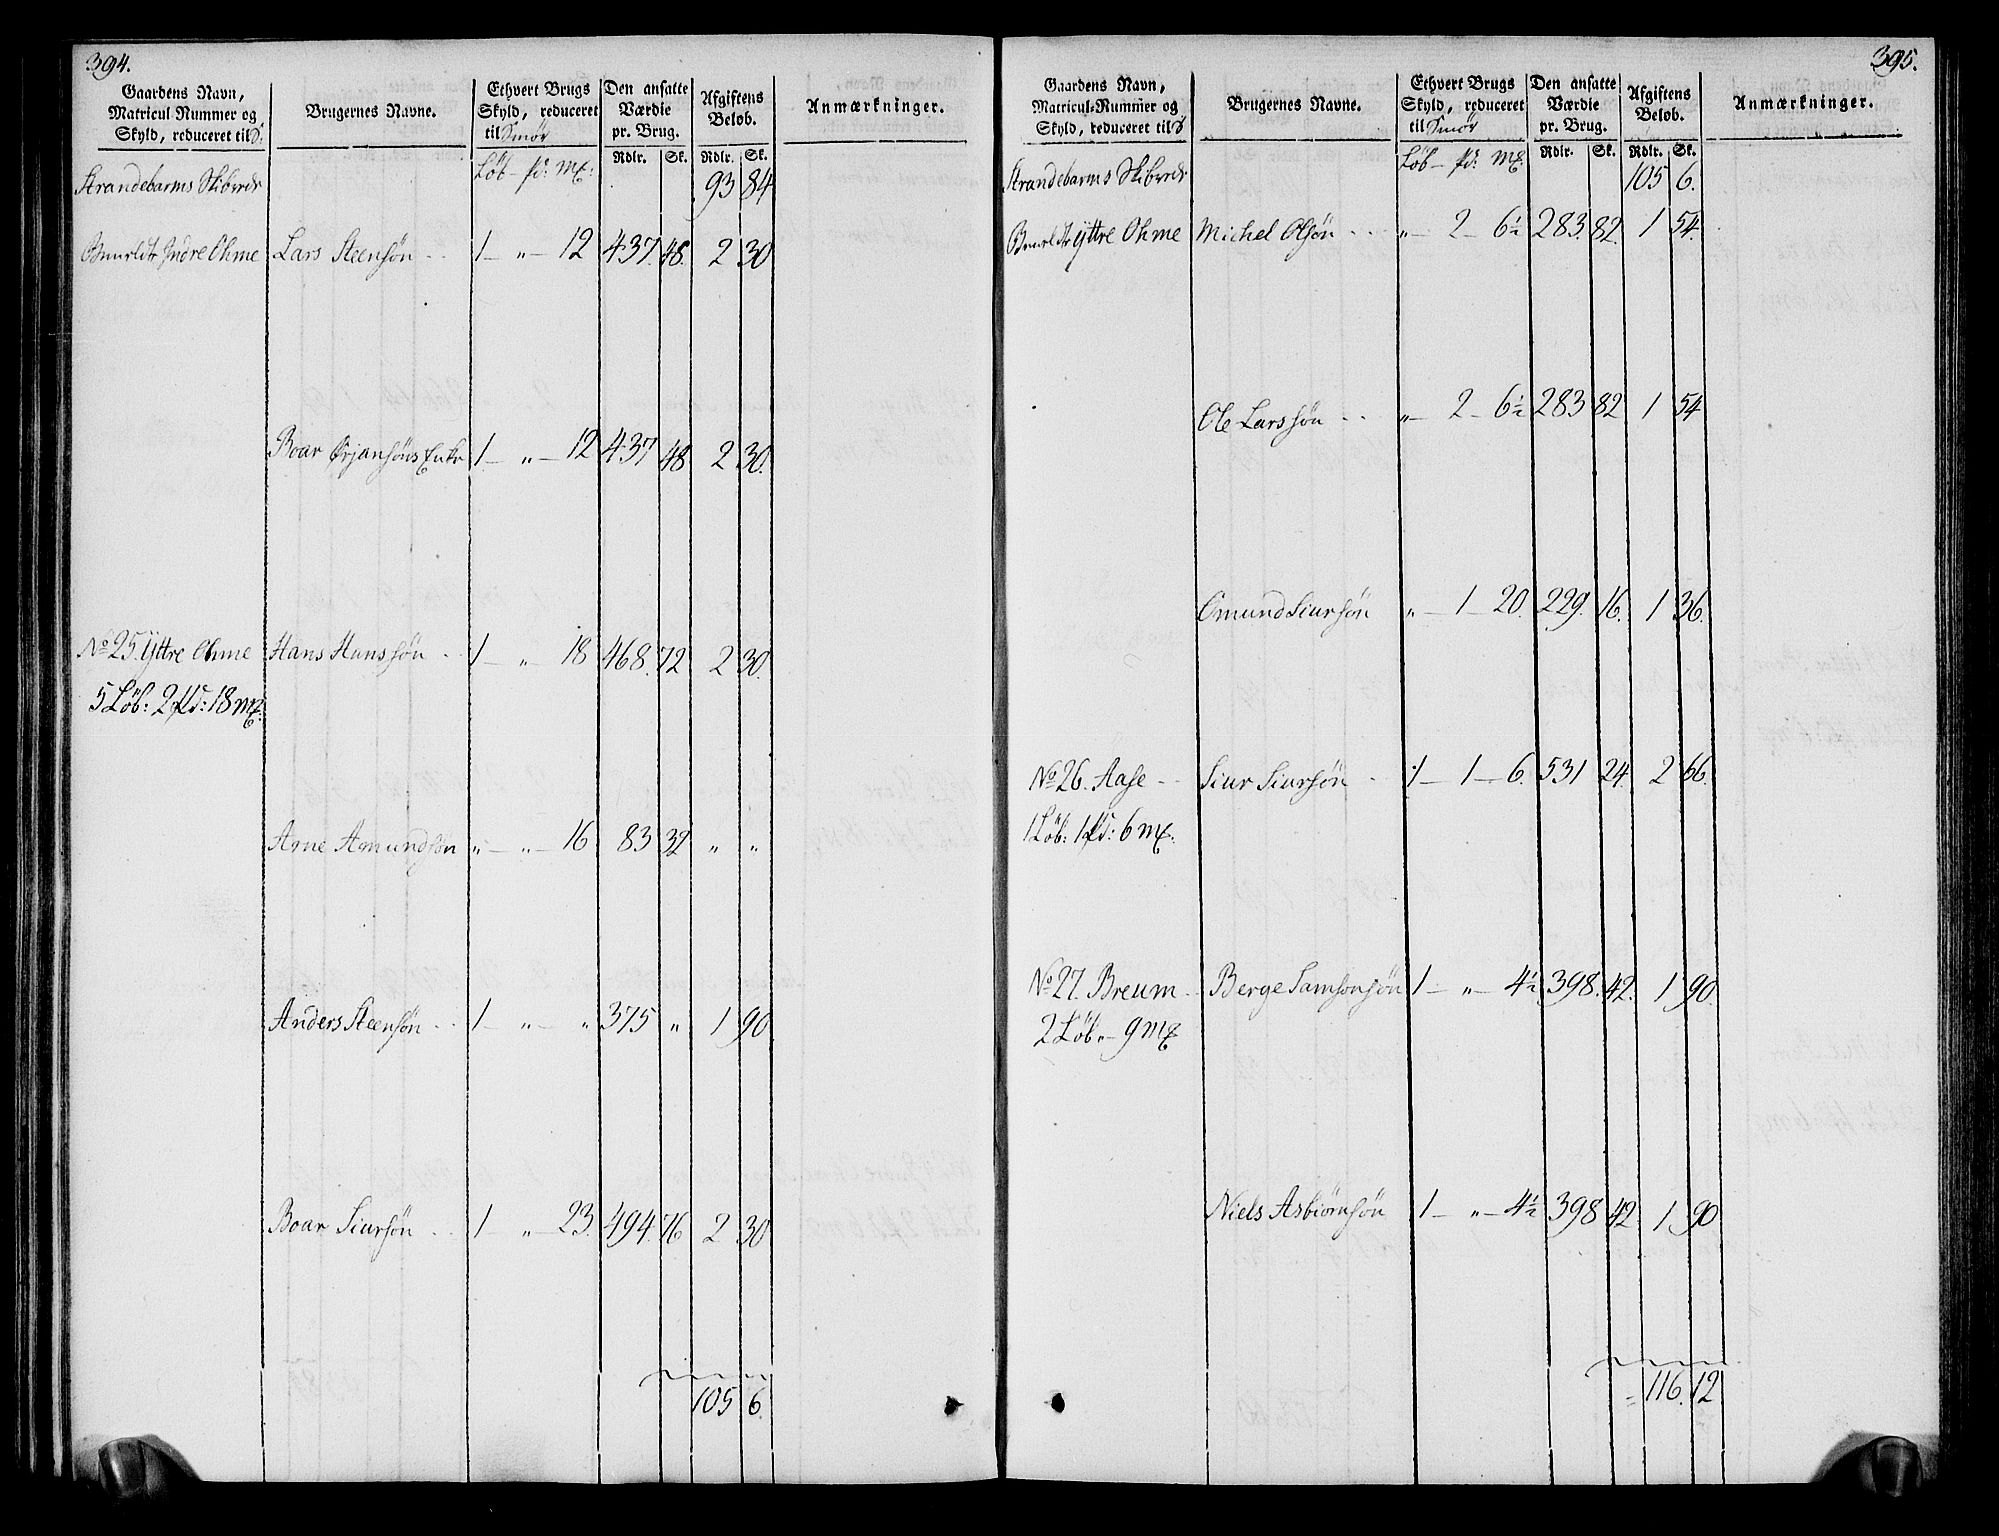 394.
Gaardens Navn, Matricul Nummer og Skyld, reduceret til S:
Brugernes Navne.
Ethvert Brugs Skyld, reduceret til Smør
Den ansatte Værdie pr. Brug.
Afgiftens Beløb.
Anmærkninger.
Løb – pd: mk: Rdlr. Sk. Rdlr. Sk.
Strandebarms Skibrede 93 84
Indre Ohme Lars Steensøn . . 1 – „ – 12 437. 48. 2 30
Boar Ørjansøns Enke 1 – „ – 12 437 48 2 30.
No 25. Yttre Ohme Hans Hanssøn . . 1 – „ – 18 468. 72 2 30.
5 Løb: 2 pd: 18 mk:
Arne Amundsøn „ – „ – 16 83 32 „ „
Anders Steensøn . . 1 – „ – „ 375 „ 1 90
Boar Siursøn . . 1 – „ – 23. 494. 76 2 30
105 6.
395.
Gaardens Navn, Matricul-Nummer og Skyld, reduceret til S
Brugernes Navne.
Ethvert Brugs Skyld, reduceret til Smør
Den ansatte Værdie pr. Brug.
Afgiftens Beløb.
Anmærkninger.
Løb – pd: mk Rdlr. Sk. Rdlr. Sk.
Strandebarms Skibrede 105 6.
Yttre Ohme Michel Olsøn . . . „ – 2 – 6½ 283. 82. 1 54.
Ole Larssøn . . „ – 2 – 6½ 283 82 1 54
Omund Siursøn „ – 1 – 20. 229. 16. 1 36.
No 26. Aase . . Siur Siursøn . . 1 – 1 – 6. 531 24. 2 66.
1 Løb: 1 pd: 6 mk:
No 27. Breum . . Berge Samsonsøn 1 – „ – 4½ 398. 42. 1 90.
2 Løb „ – 9 mk
Niels Asbiørnsøn 1 – „ – 4½ 398 42 1 90.
116. 12